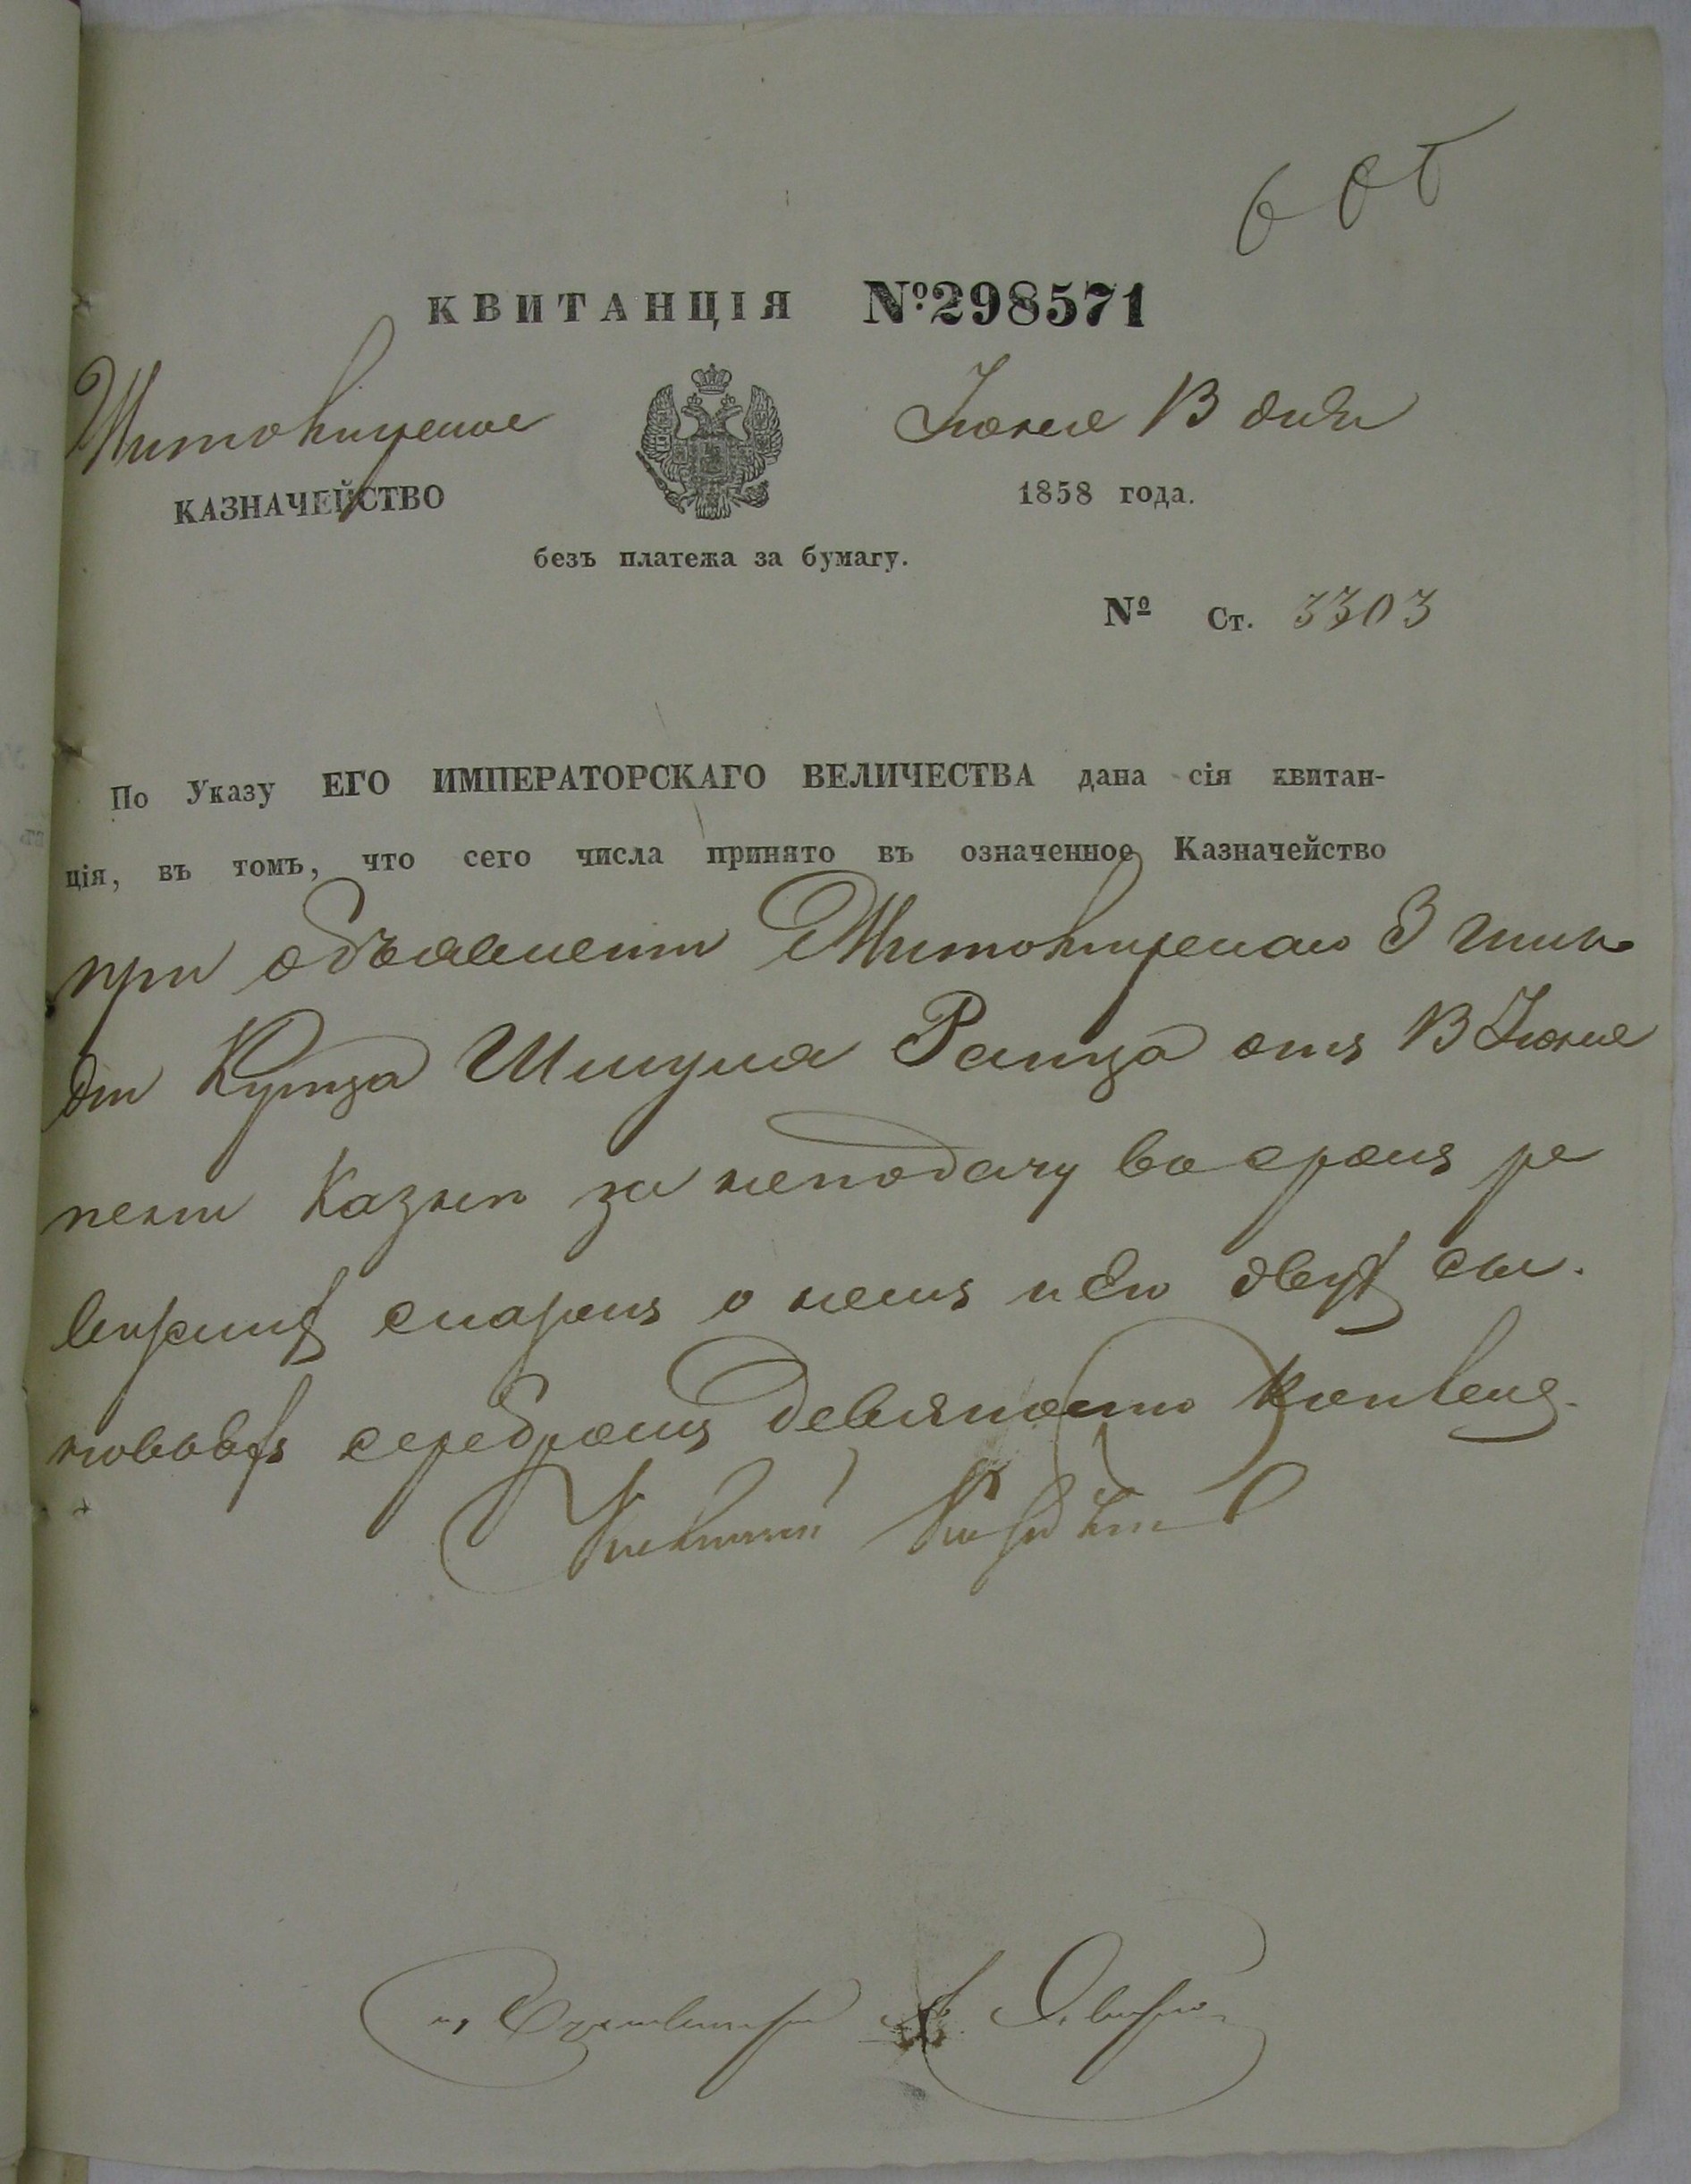 КВИТАНЦІЯ №298571
Житомирское
Іюня 13 дня
КАЗНАЧЕЙСТВО
1858 года.
безъ платежа за бумагу.
№ Ст. 3303
По Указу ЕГО ИМПЕРАТОРСКАГО ВЕЛИЧЕСТВА дана сія квитан-
ція, въ томъ, что сего числа принято въ означенное Казначейство
при объявленіи Житомирскаго 3 гиль
діи Купца Шмуля Ратца отъ 13 Іюня
пени Казны за неподачу въ срокъ ре
визскихъ сказокъ о немъ и его двухъ сы.
новьяхъ серебромъ девяносто копѣекъ.